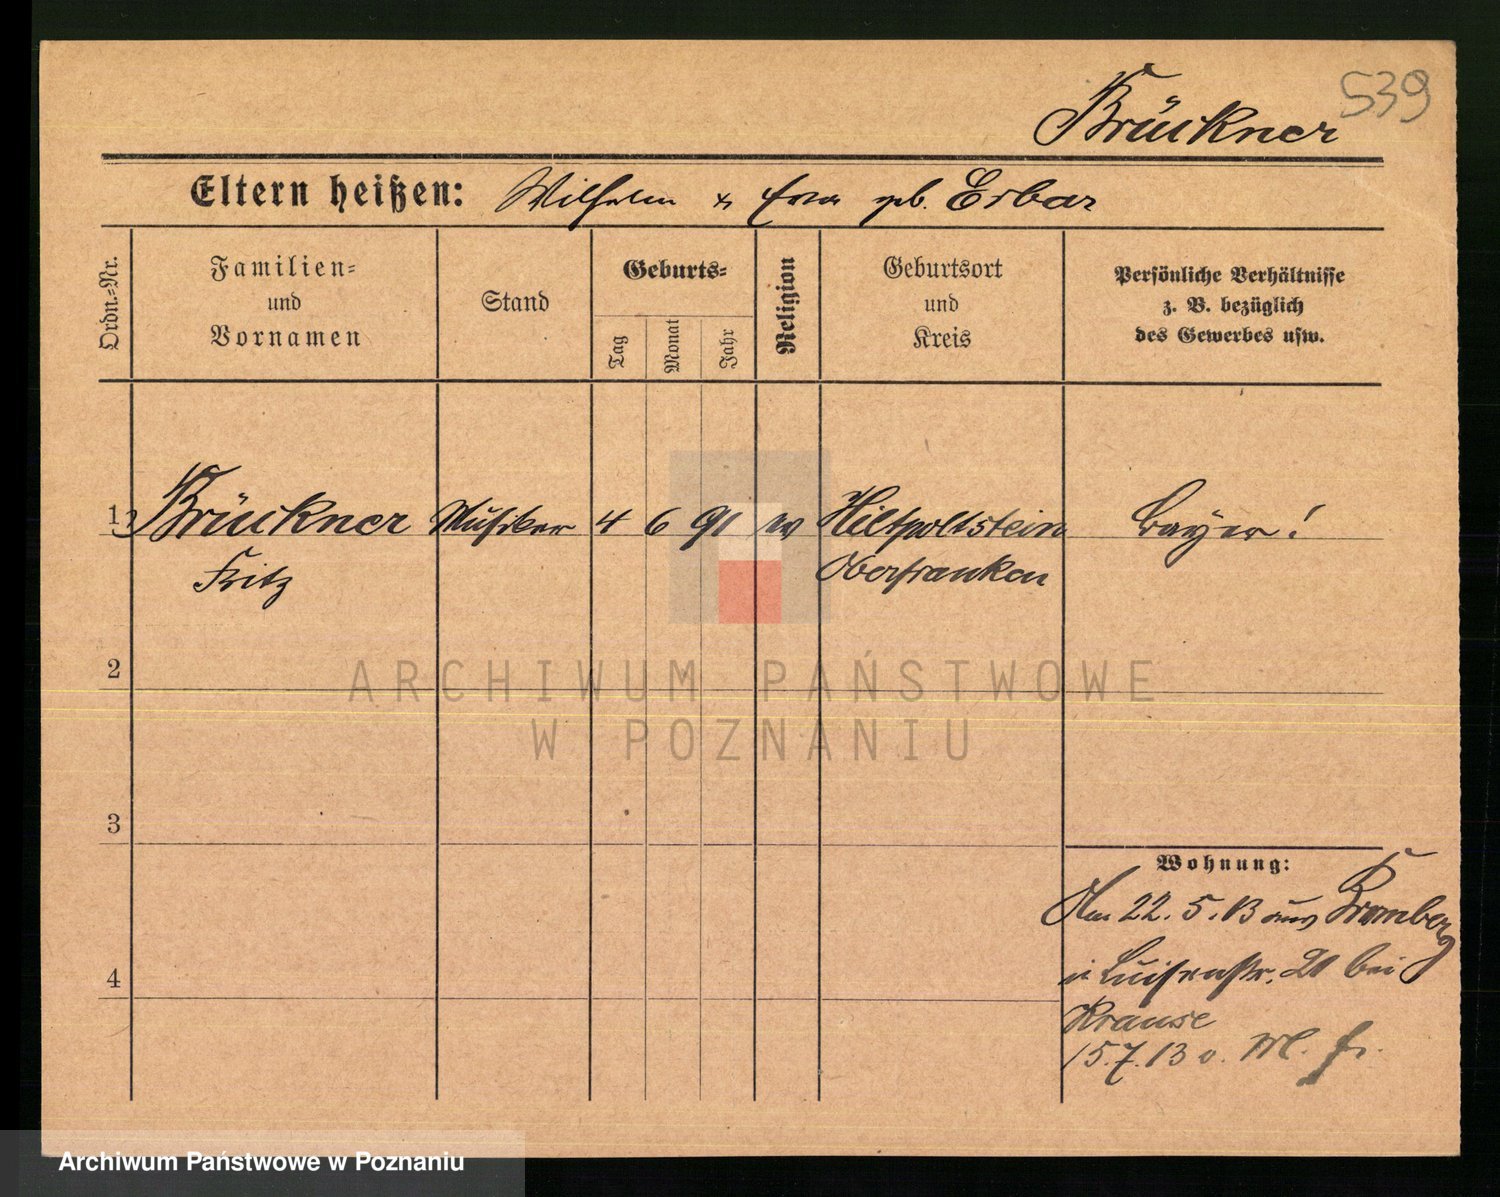 539
Brückner
Eltern heißen: Wilhelm u Eva geb. Erbar
Ordn.=Nr.
Familien=
und
Vornamen
Stand
Geburts=
Tag
Monat
Jahr
Religion
Geburtsort
und
Kreis
Persönliche Verhältnisse
z. B. bezüglich
des Gewerbes usw.
1 Brückner Musiker 4 6 91 ev Hiltpoltstein Bayer!
Fritz Oberfranken
2
ARCHIWUM PAŃSTWOWE
W POZNANIU
3
Wohnung:
22.5.13 aus Bromberg
Luisenstr. 21 bei
4
Krause
15.7.13 v.
Archiwum Państwowe w Poznaniu